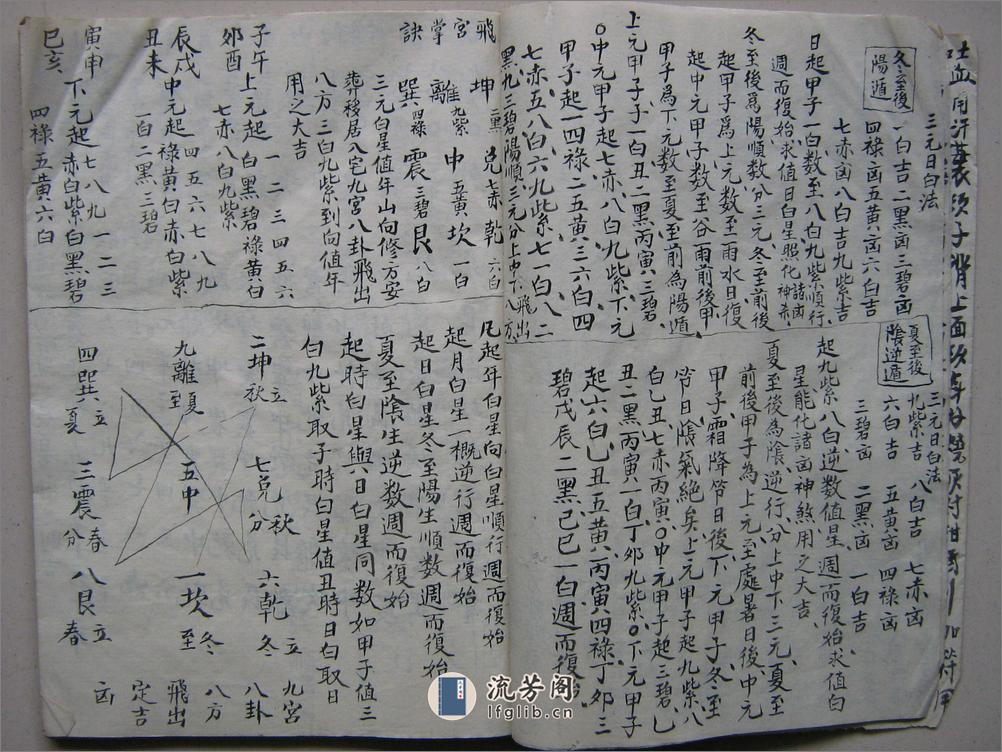 三元日白法
冬至後
陽遁
一白吉二黑凶三碧凶
四綠凶五黃凶六白吉
七赤凶八白吉九紫吉
日起甲子一白数至八白九紫順行
週而復始求值日白星照化諸凶神煞
冬至後爲陽順数分三元冬至前後
起甲子爲上元数至雨水日復
起中元甲子数至谷雨前後甲
甲子爲下元数至夏至前為陽遁
上元甲子一白丑二黑丙寅三碧
○中元甲子起七赤八白九紫下元
甲子起一四祿二五黃三六白四
七赤五八白六九紫七一白八二
黑九三碧陽順三元分上中下飛出八方
夏至後
陰逆遁
三元日白法
九紫吉 八白吉 七赤凶
六白吉 五黃凶 四綠凶
三碧凶 二黑凶 一白吉
起九紫八白逆数值星週而復始求值白
星能化諸凶神煞用之大吉
夏至後為陰逆行分上中下三元夏至
前後甲子為上元至處暑日後中元
甲子霜降節日後下元甲子冬至
節日陰氣絶矣上元甲子起九紫八
白乙丑七赤丙寅○中元甲子起三碧乙
丑二黑丙寅一白丁卯九紫○下元甲子
起六白乙丑五黃丙寅四綠丁卯三
碧戊辰二黑己巳一白週而復始
飛宮掌訣
坤二黑 兌七赤 乾六白
離九紫 中五黃 坎一白
巽四綠 震三碧 艮八白
三元白星值年山向修方安
葬移居八宅九宮八卦飛出
八方三白九紫到向值年
用之大吉
子午卯酉 上元起 一二三四五六 白黑碧祿黃白
七赤八白九紫
辰戌丑未 中元起 四五六七八九 祿黃白赤白紫
一白二黑三碧
寅申巳亥 下元起 七八九一二三 赤白紫白黑碧
四祿五黃六白
凡起年白星向白星順行週而復始
起月白星一概逆行週而復始
起日白星冬至陽生順数週而復始
夏至陰生逆数週而復始
起時白星與日白星同数如甲子值三
白九紫取子時白星值丑時白取日
二坤立秋 七兌秋分 六乾立冬
九離夏至 五中 一坎冬至
四巽立夏 三震春分 八艮立春
九宮
八卦
八方
飛出
定吉
凶
流芳阁
lfglib.cn